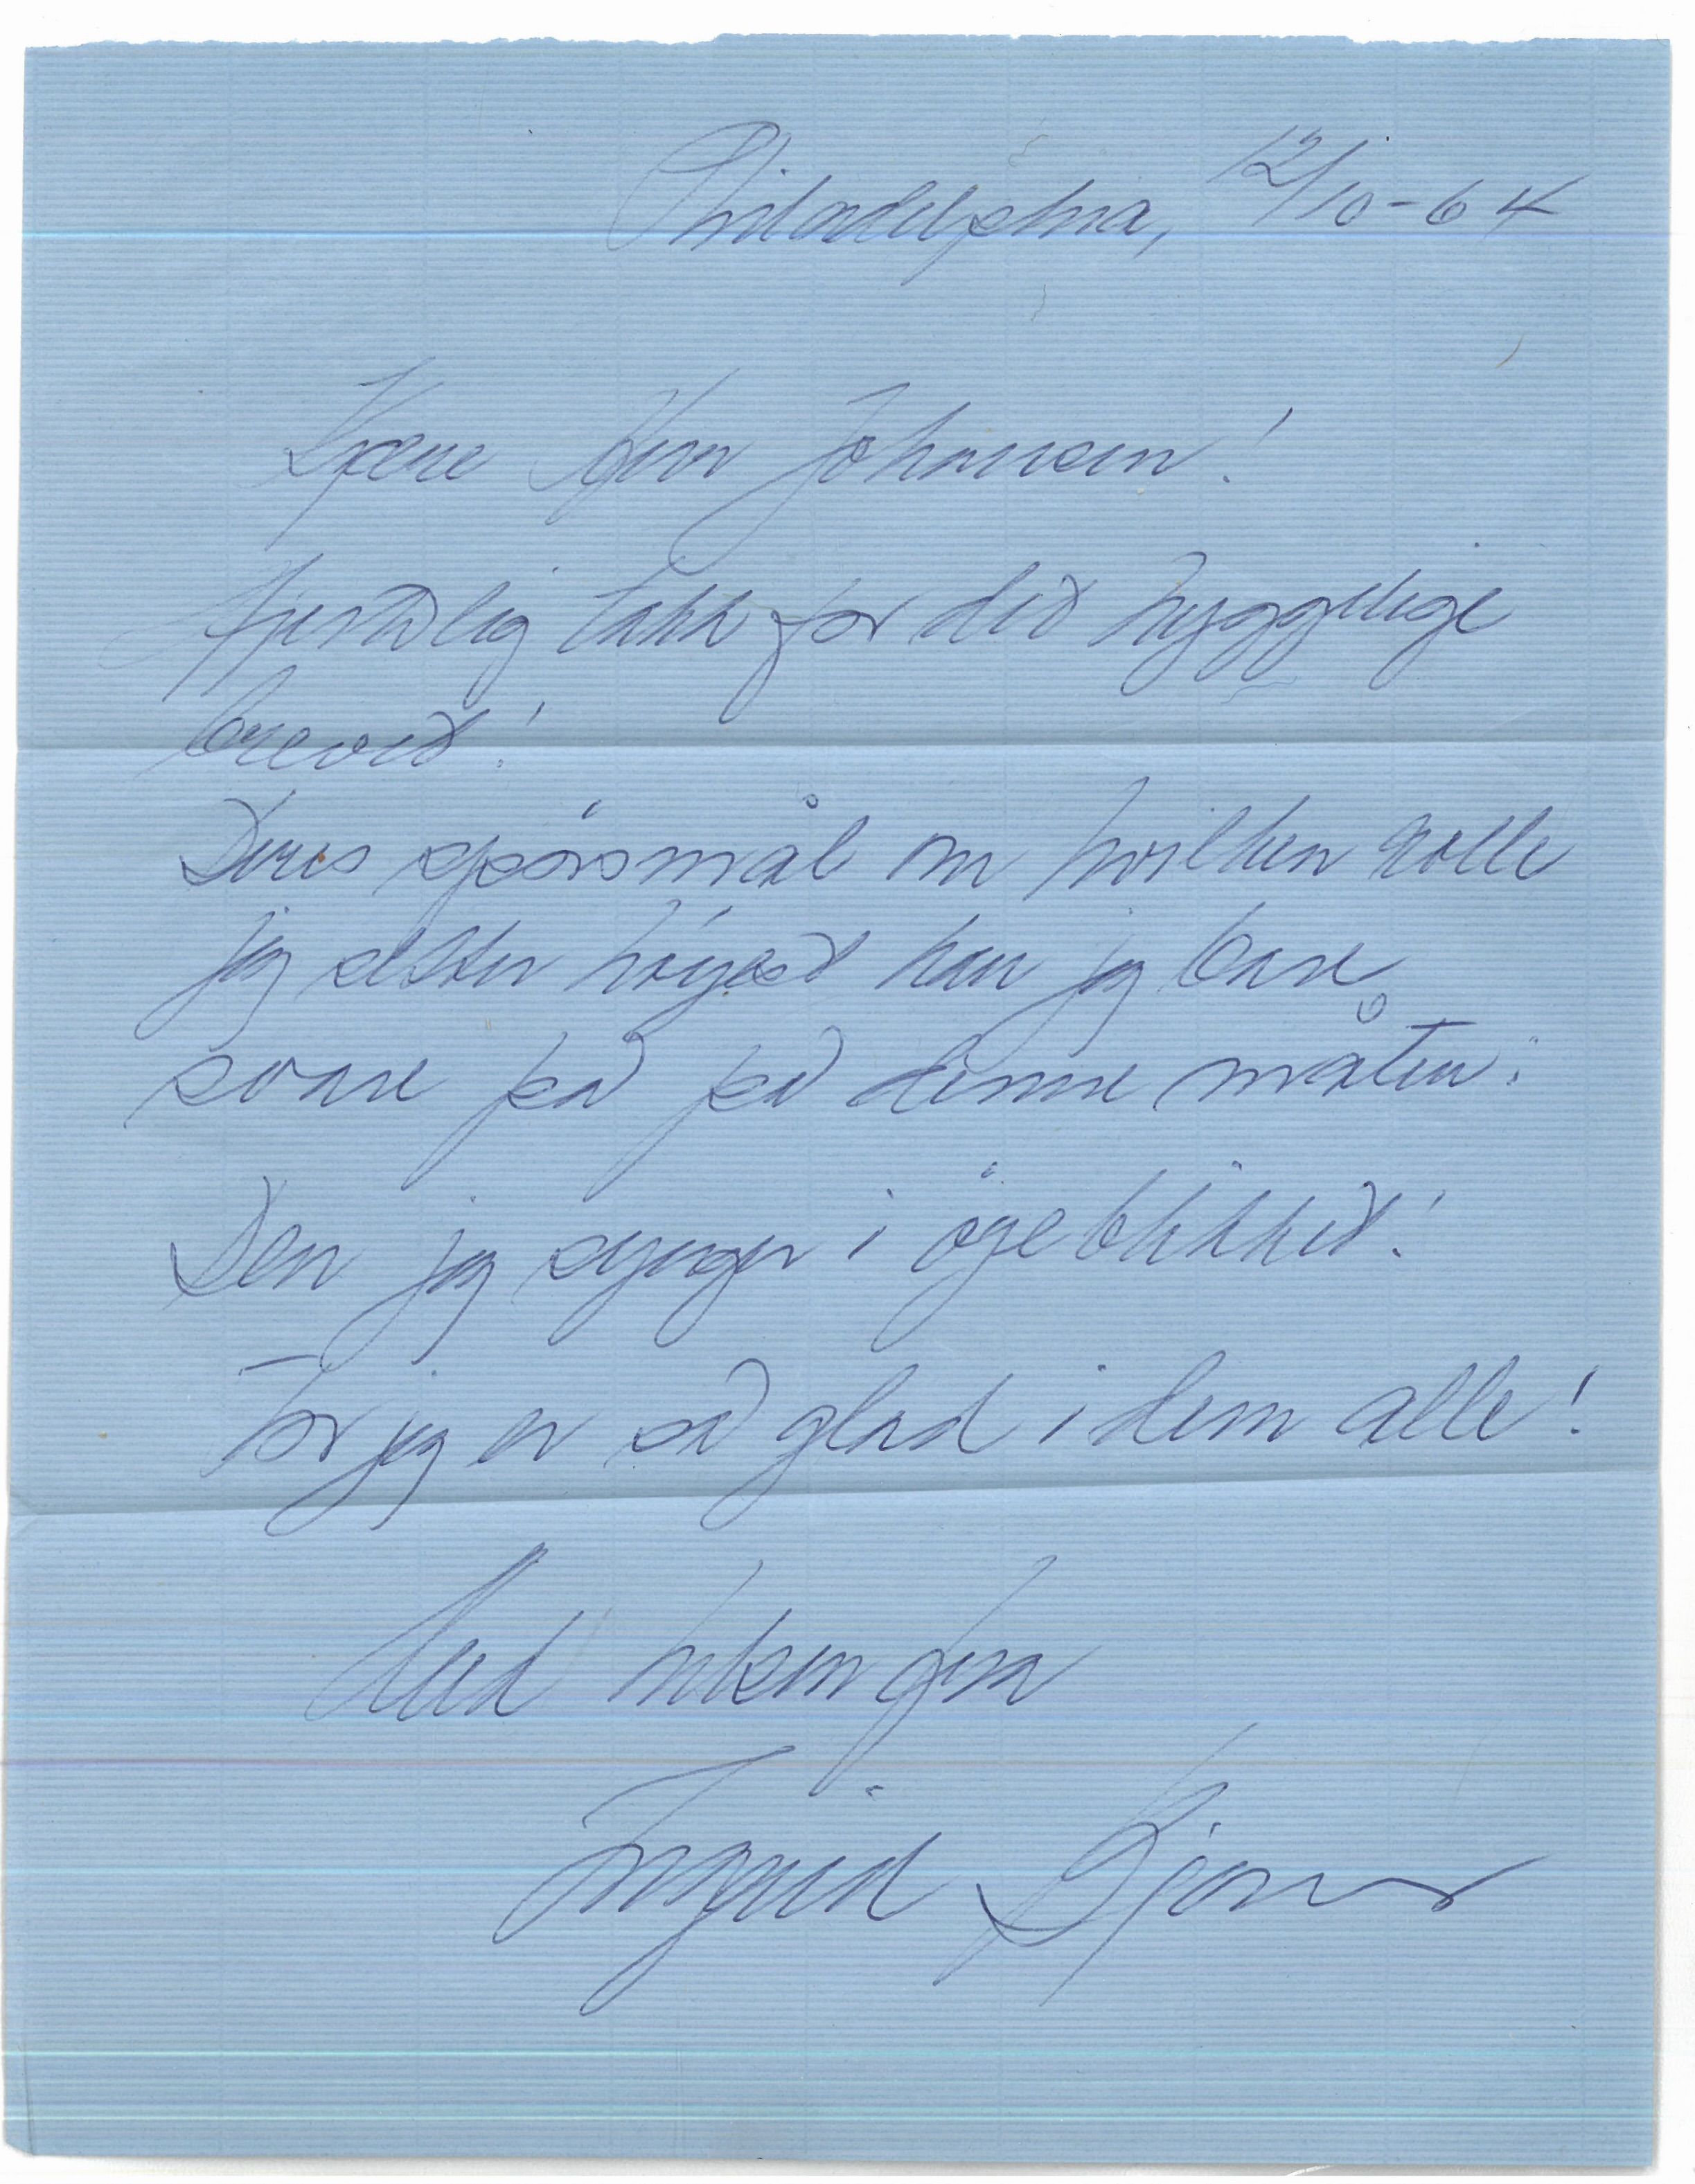 Philadelphia, 12/10-64
Kjære Herr Johansen!
Hjertelig takk for det hyggelige
brevet!
Deres spørsmål om hvilken rolle
jeg elsker høyest kan jeg bare
svare på på denne måten:
Den jeg synger i øgeblikket!
For jeg er så glad i dem alle!
Med hilsen fra
Ingrid Bjoner